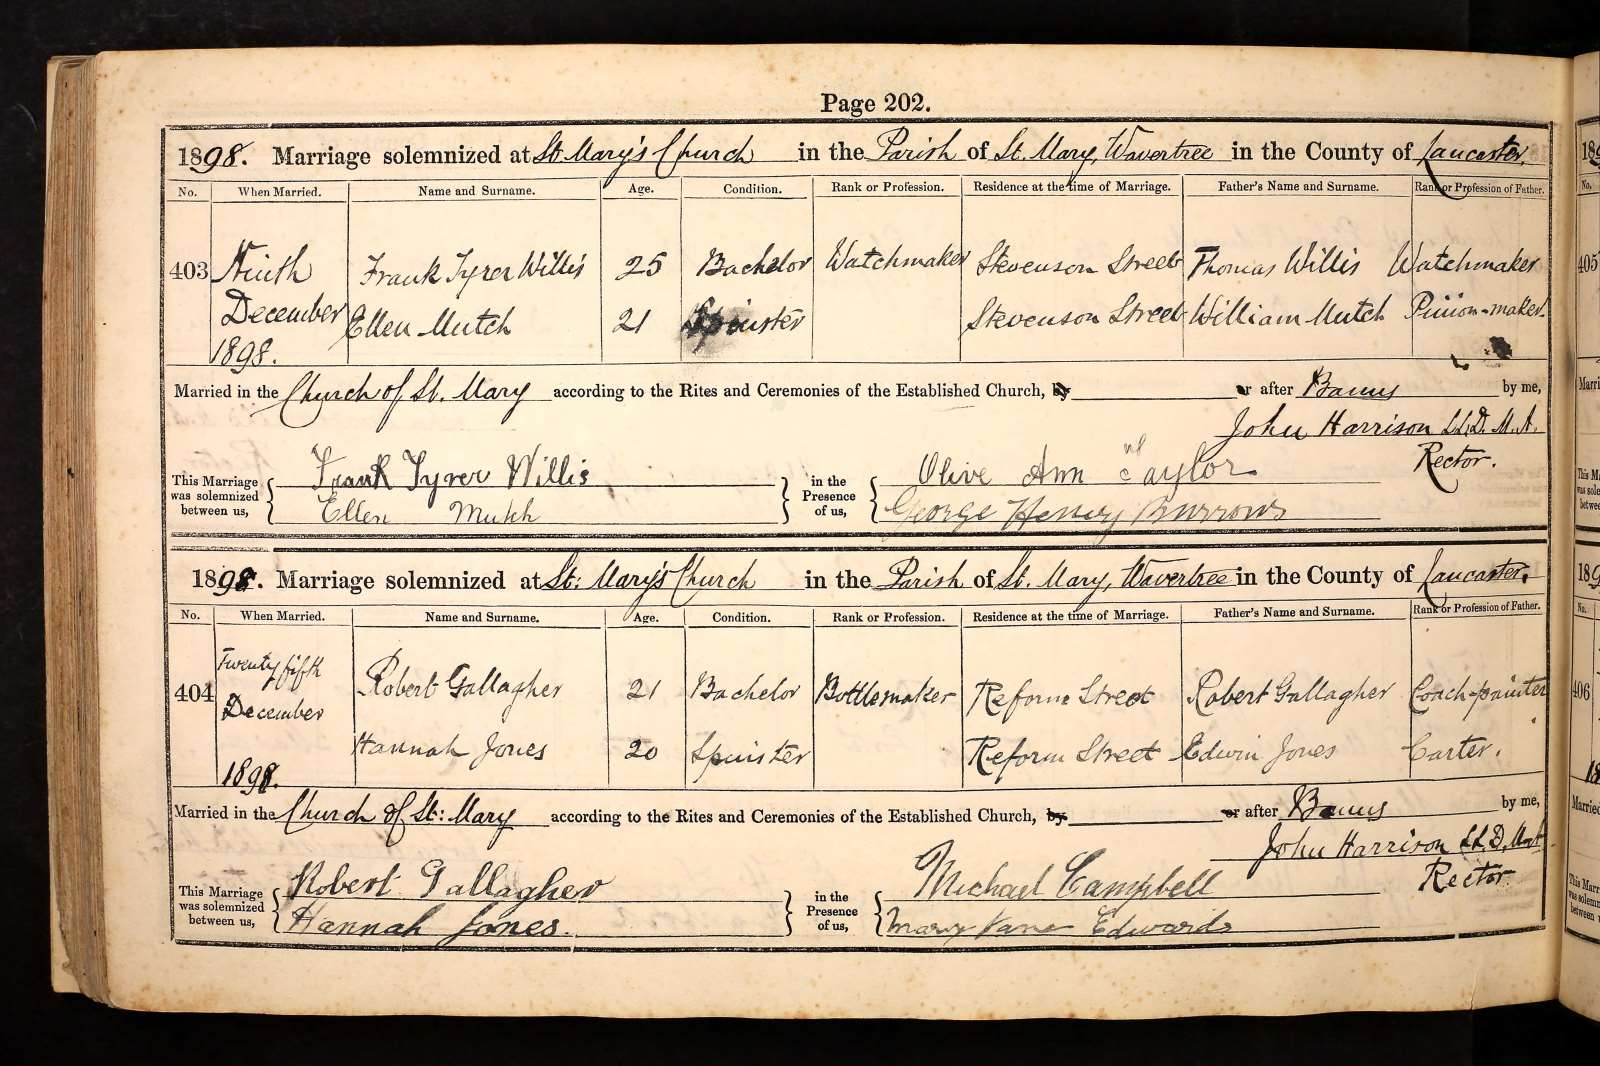 Page 202.
1898. Marriage solemnized at St. Mary's Church in the Parish of St. Mary, Wavertree in the County of Lancaster.
No. When Married. Name and Surname. Age. Condition. Rank or Profession. Residence at the time of Marriage. Father's Name and Surname. Rank or Profession of Father.
403 Ninth Frank Tyrer Willis 25 Bachelor Watchmaker Stevenson Street Thomas Willis Watchmaker
December Ellen Mutch 21 Spinster Stevenson Street William Mutch Pinion-maker.
1898.
Married in the Church of St. Mary according to the Rites and Ceremonies of the Established Church, by or after Banns by me,
John Harrison LL.D. M.A.
Rector.
This Marriage was solemnized between us, Frank Tyrer Willis in the Presence of us, Olive Ann Taylor
Ellen Mutch George Henry Burrows
1898. Marriage solemnized at St: Mary's Church in the Parish of St. Mary, Wavertree in the County of Lancaster.
No. When Married. Name and Surname. Age. Condition. Rank or Profession. Residence at the time of Marriage. Father's Name and Surname. Rank or Profession of Father.
Twenty fifth
404 December Robert Gallagher 21 Bachelor Bottlemaker Reform Street Robert Gallagher Coach-painter
Hannah Jones 20 Spinster Reform Street Edwin Jones Carter.
1898.
Married in the Church of St: Mary according to the Rites and Ceremonies of the Established Church, by or after Banns by me,
John Harrison LL.D, M.A.
Rector.
This Marriage was solemnized between us, Robert Gallagher in the Presence of us, Michael Campbell
Hannah Jones. Mary Jane Edwards
405
406